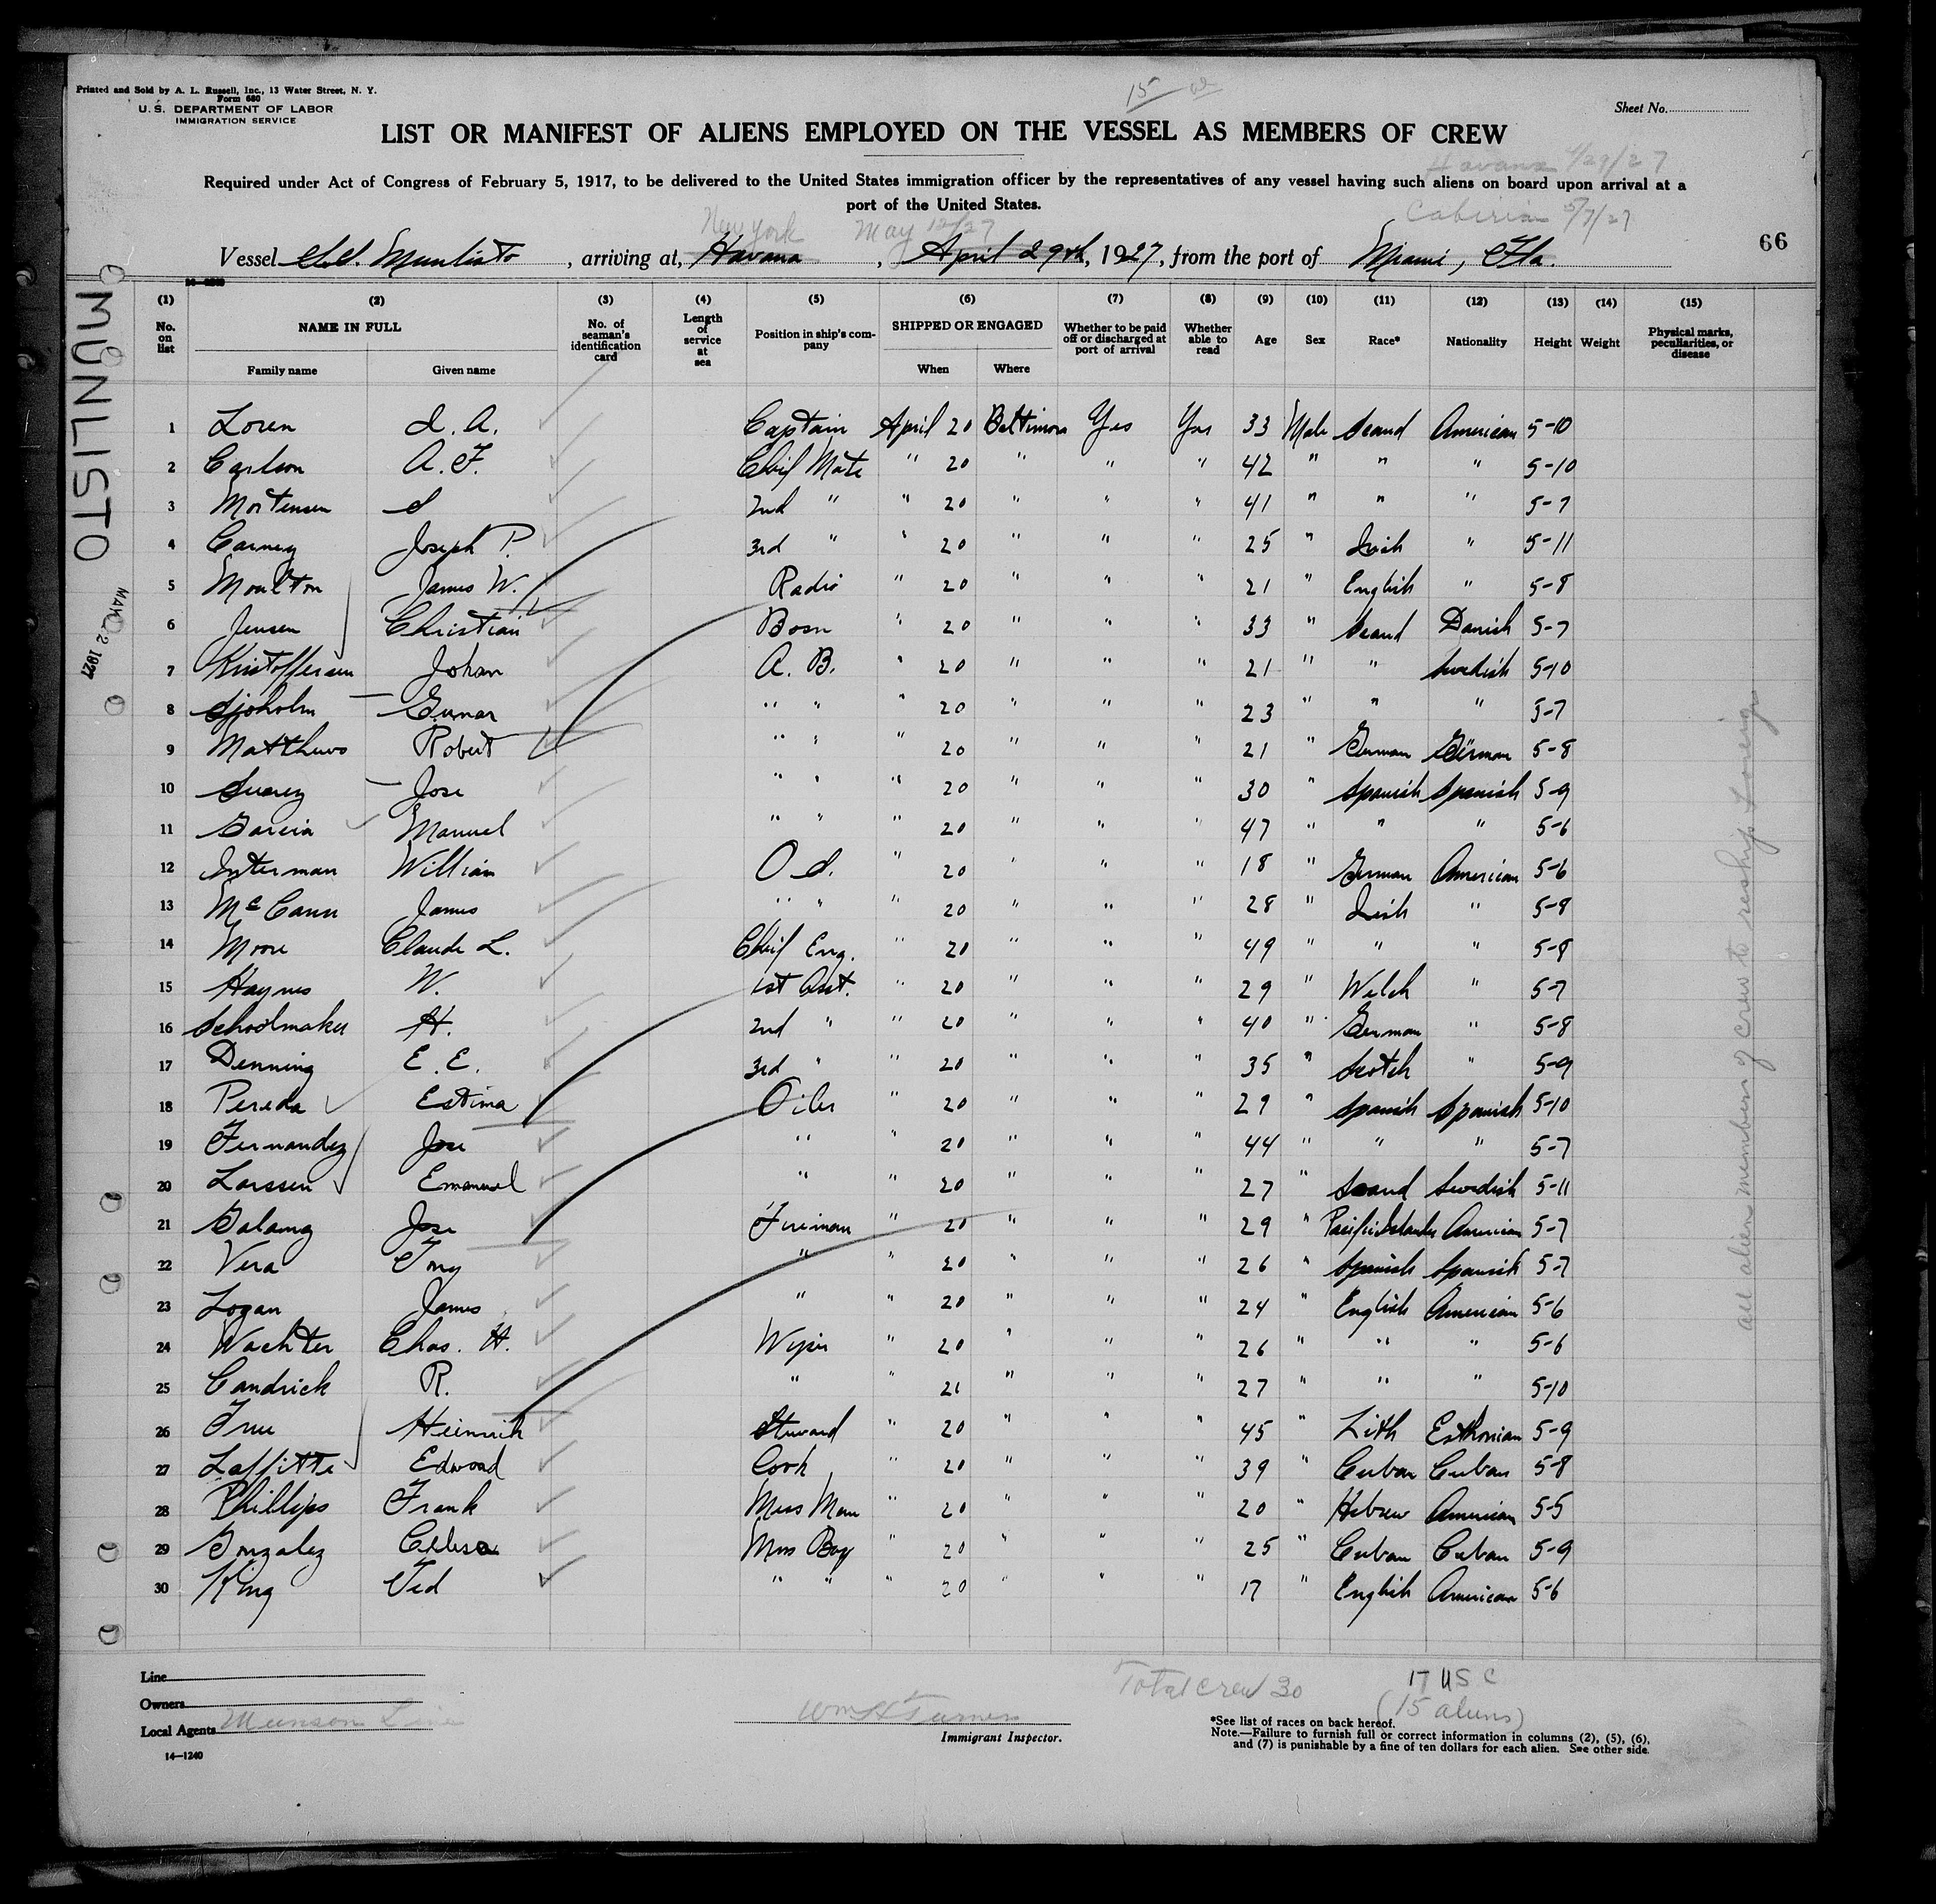 Printed and Sold by A. L. Russell, Inc., 13 Water Street, N. Y.
Form 680
U. S. DEPARTMENT OF LABOR
IMMIGRATION SERVICE
15
Sheet No.
LIST OR MANIFEST OF ALIENS EMPLOYED ON THE VESSEL AS MEMBERS OF CREW
Havana 4/29/27
Required under Act of Congress of February 5, 1917, to be delivered to the United States immigration officer by the representatives of any vessel having such aliens on board upon arrival at a
port of the United States.
New York May 12/27 5/7/27
66
Vessel S.S. Munlisto, arriving at, Havana, April 29th, 1927, from the port of Miami, Fla.
MUNLISTO
MAY 12 1927
(1) (2) (3) (4) (5) (6) (7) (8) (9) (10) (11) (12) (13) (14) (15)
No. on list NAME IN FULL No. of seaman's identification card Length of service at sea Position in ship's company SHIPPED OR ENGAGED Whether to be paid off or discharged at port of arrival Whether able to read Age Sex Race* Nationality Height Weight Physical marks, peculiarities, or disease
Family name Given name When Where
1 Loren S. A. Captain April 20 Baltimore Yes Yes 33 Male Scand American 5-10
2 Carlson A. F. Chief Mate " 20 " " " 42 " " " 5-10
3 Mortensen S 2nd " " 20 " " " 41 " " " 5-7
4 Carney Joseph P. 3rd " " 20 " " " 25 " Irish " 5-11
5 Moulton James W. Radio " 20 " " " 21 " English " 5-8
6 Jensen Christian Bosn " 20 " " " 33 " Scand Danish 5-7
7 Kristoffersen Johan A. B. " 20 " " " 21 " " Swedish 5-10
8 Sjoholm Gunnar " " " 20 " " " 23 " " " 5-7
9 Matthews Robert " " " 20 " " " 21 " German German 5-8
10 Suarez Jose " " " 20 " " " 30 " Spanish Spanish 5-9
11 Garcia Manuel " " " 20 " " " 47 " " " 5-6
12 Interman William O. S. " 20 " " " 18 " German American 5-6
13 McCann James " " " 20 " " " 28 " Irish " 5-8
14 Moore Claude L. Chief Eng. " 20 " " " 49 " " " 5-8
15 Haynes W. 1st Asst. " 20 " " " 29 " Welch " 5-7
16 Schoolmaker H. 2nd " " 20 " " " 40 " German " 5-8
17 Denning E. E. 3rd " " 20 " " " 35 " Scotch " 5-9
18 Pereda Estima Oiler " 20 " " " 29 " Spanish Spanish 5-10
19 Fernandez Jose " " 20 " " " 44 " " " 5-7
20 Larssen Emanuel " " 20 " " " 27 " Scand Swedish 5-11
21 Galang Jose Fireman " 20 " " " 29 " Pacific Islander American 5-7
22 Vera Tony " 20 " " " 26 " Spanish Spanish 5-7
23 Logan James " " 20 " " " 24 " English American 5-6
24 Wachter Chas. H. Wiper " 20 " " " 26 " " " 5-6
25 Candrick R. " " 21 " " " 27 " " " 5-10
26 Heinrich Steward " 20 " " " 45 " Lith Esthonian 5-9
27 Laffitte Edward Cook " 20 " " " 39 " Cuban Cuban 5-8
28 Phillips Frank Mess Man " 20 " " " 20 " Hebrew American 5-5
29 Gonzalez Celiso Mess Boy " 20 " " " 25 " Cuban Cuban 5-9
30 King Ted " " " 20 " " " 17 " English American 5-6
all alien members of crew to reship foreign
Line
Owners
Local Agents Munson Line
14—1240
Wm H Turner
Immigrant Inspector.
Total crew 30
17 USC
(15 aliens)
*See list of races on back hereof.
Note.—Failure to furnish full or correct information in columns (2), (5), (6),
and (7) is punishable by a fine of ten dollars for each alien. See other side.